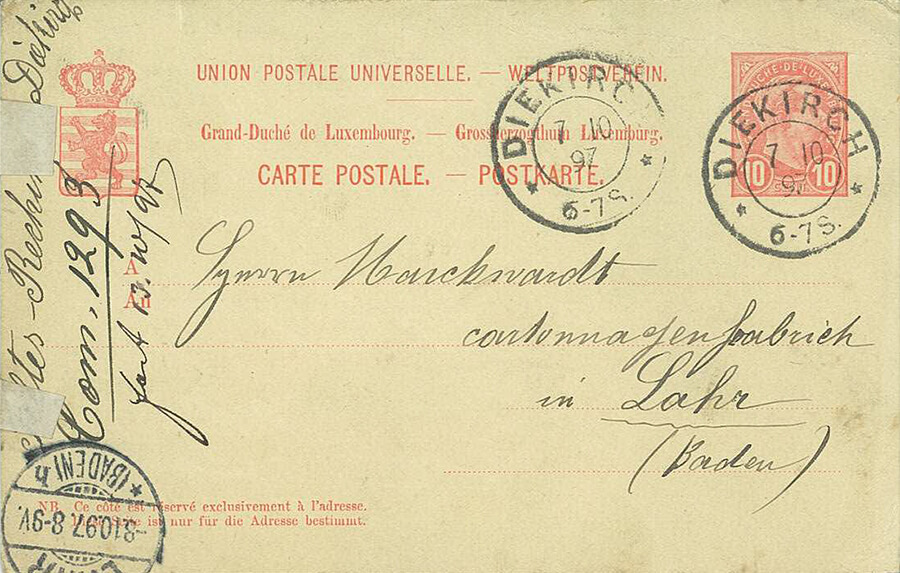 UNION POSTALE UNIVERSELLE. — WELTPOSTVEREIN.
Grand-Duché de Luxembourg. — Grossherzogthum Luxemburg.
CARTE POSTALE. — POSTKARTE.
DIEKIRCH
7 10
97
6-7S.
DUCHÉ-DE-LUX
10 10
DIEKIRCH
7 10
97
6-7S.
A
An
Herrn Marckwardt
cartonnagenfabrick
in Lahr
(Baden)
Diekirch
Com. 1293
13.
(BADEN)
-8.10.97.8-9V.
NB. Ce côté est réservé exclusivement à l'adresse.
Diese Seite ist nur für die Adresse bestimmt.